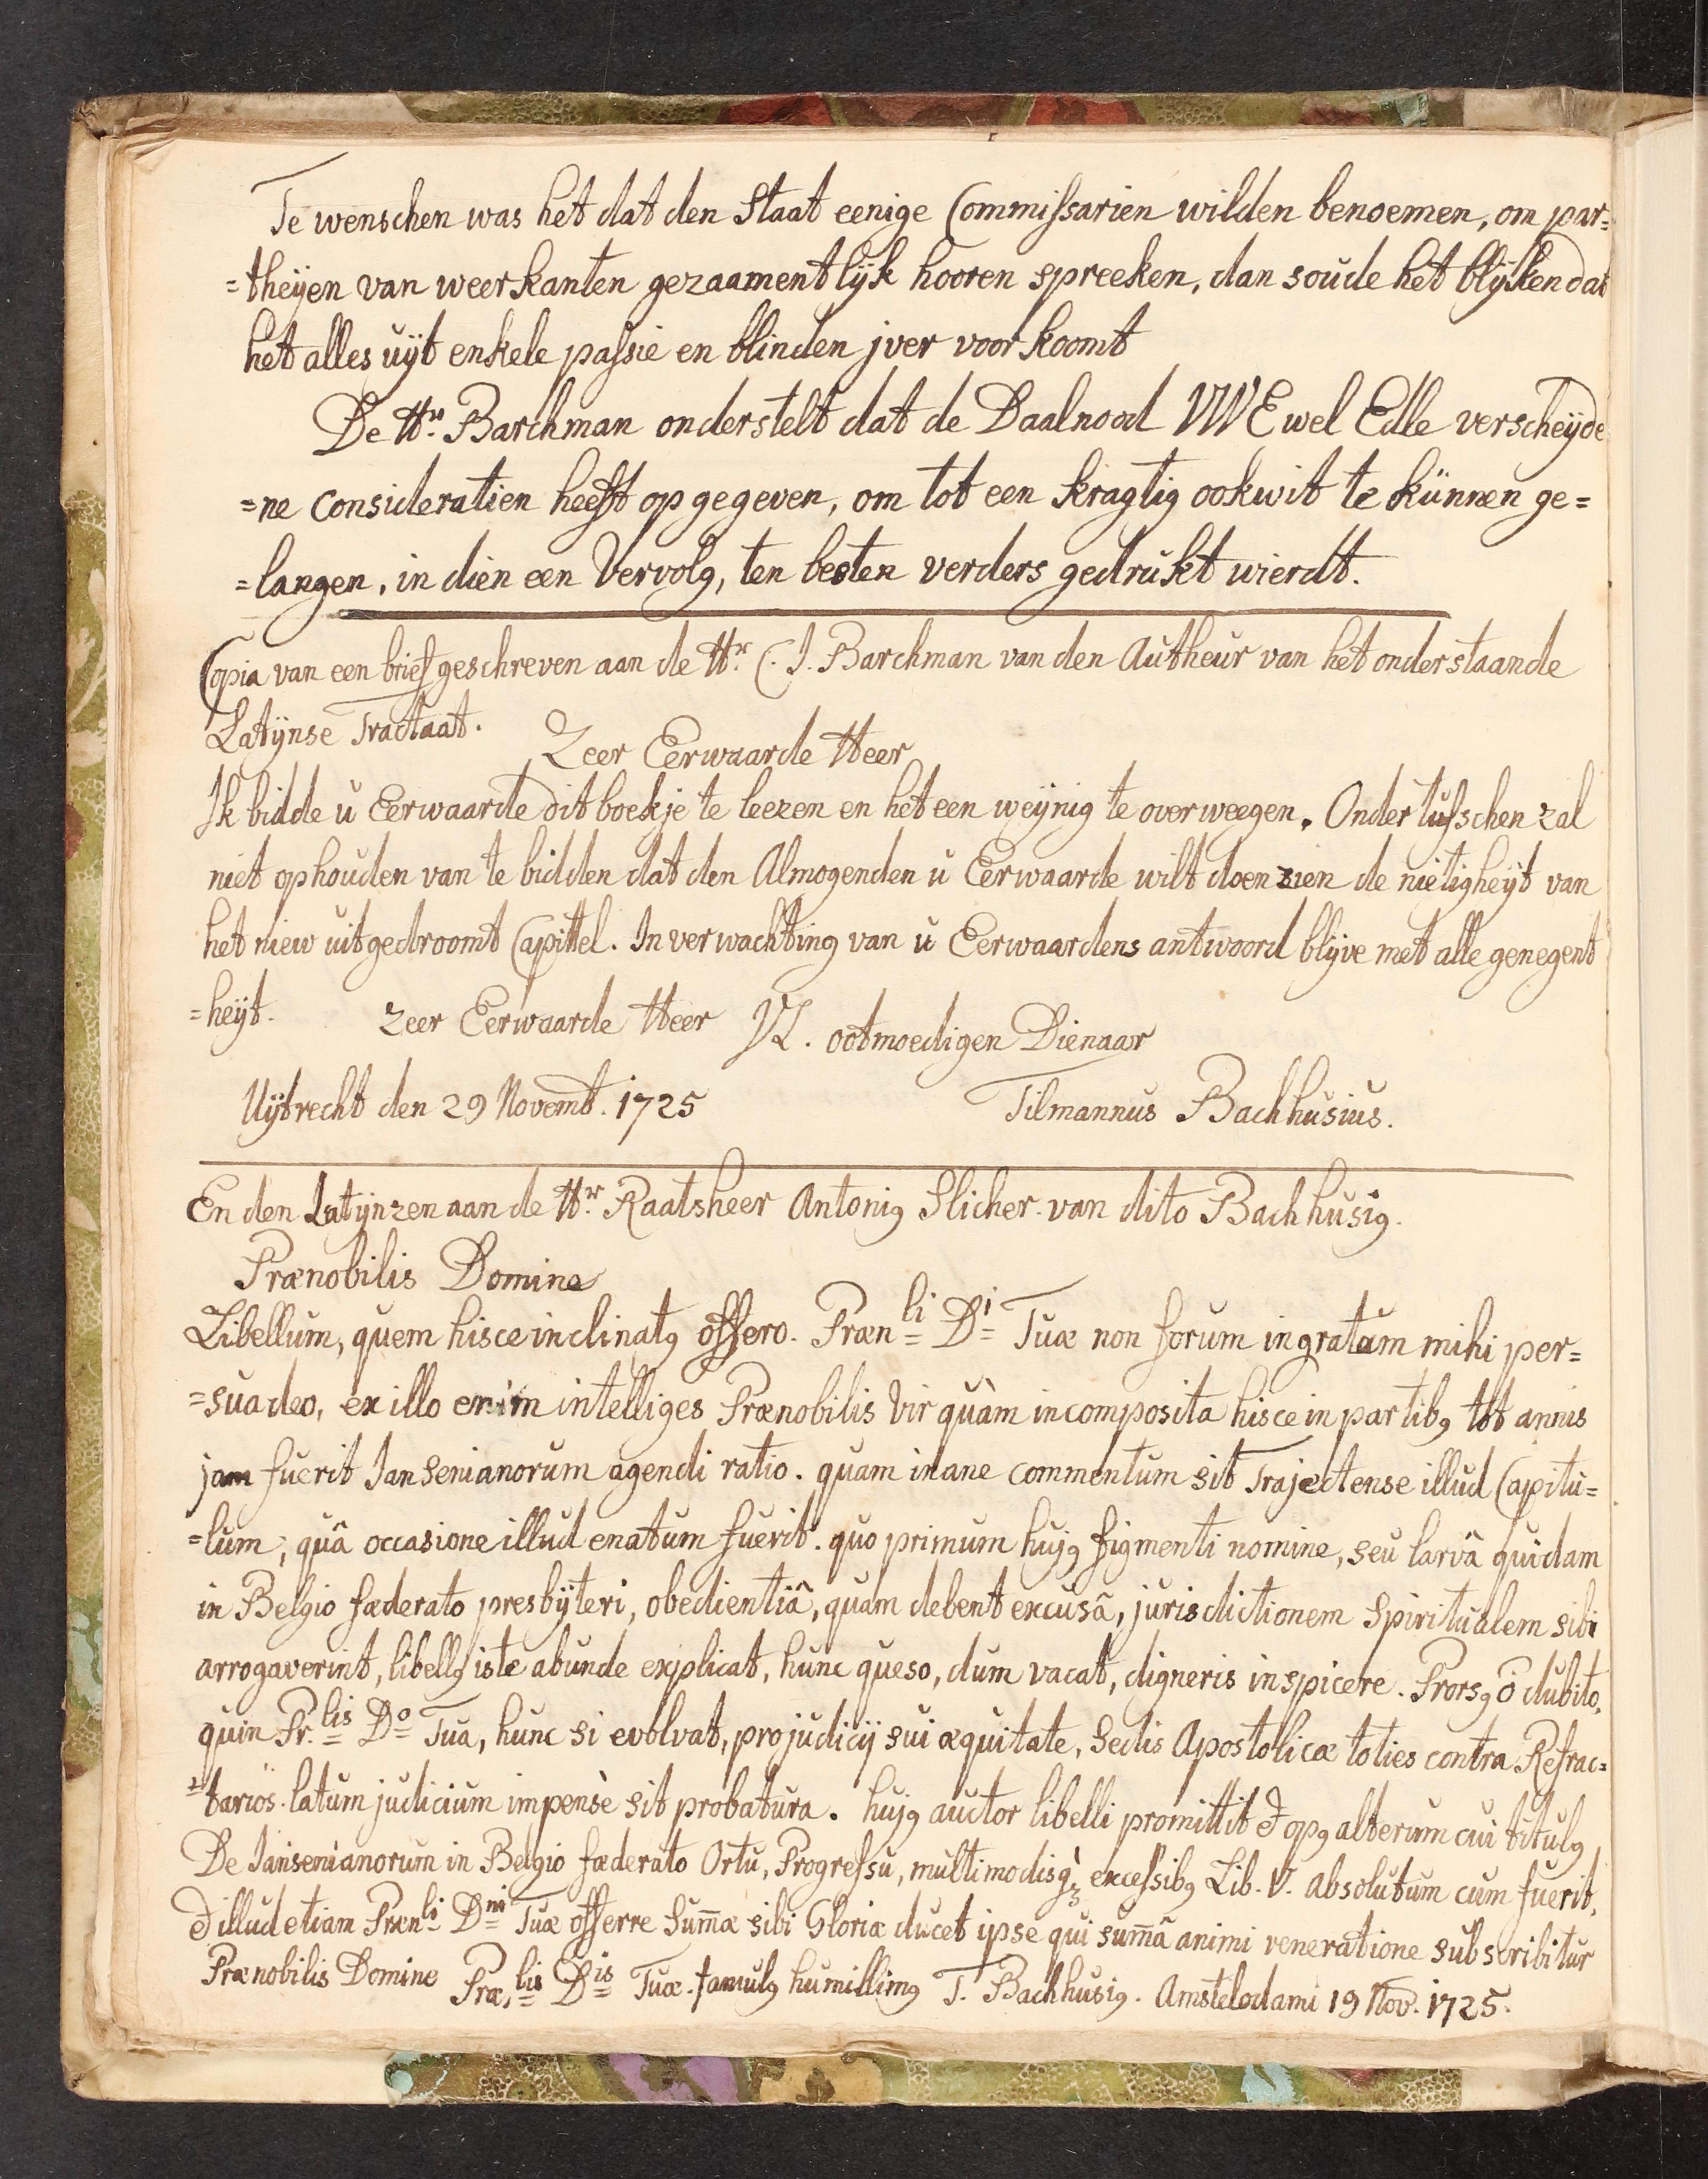 Te wenschen was het dat den Staat eenige Commissarien wilden benoemen, om par=
=theÿen van weerkanten gezaamentlÿk hooren spreeken, dan soude het blÿken dat
het alles uÿt enkele passie en blinden jver voor koomt
De Hr. Barchman onderstelt dat de Daalnood VW Ewel Edle verscheÿde
=ne consideratien heeft op gegeven, om tot een kragtig ookwit te kunnen ge=
=langen, in dien een Vervolg, ten besten verders gedrukt wierdt.
Copia van een brief geschreven aan de Hr. C. J. Barchman van den Autheur van het onderstaande
Latÿnse Tractaat.
Zeer Eerwaarde Heer
Ik bidde u Eerwaarde dit boekje te leezen en het een weÿnig te overweegen. Ondertusschen zal
niet ophouden van te bidden dat den Almogenden u Eerwaarde wilt doen zien de nietigheÿt van
het niew uitgedroomt Capittel. In verwachting van u Eerwaardens antwoord blÿve met alle genegent
=heÿt. zeer Eerwaarde Heer VL. ootmoedigen Dienaar
Uÿtrecht den 29 Novemt. 1725 Tilmannus Bachhusius.
En den Latÿnzen aan de Hr. Raatsheer Antoniꝯ Slicher. van dito Bachhusiꝯ.
Prænobilis Domine
Libellum, quem hisce inclinatꝯ offero. Præn=li D=i Tuæ non forum ingratum mihi per=
=suadeo, ex illo enim intelliges Prænobilis Vir quàm incomposita hisce in partibꝯ tot annis
jam fuerit Jansenianorum agendi ratio. quam inane commentum sit Trajectense illud Capitu=
=lum; quâ occasione illud enatum fuerit. quo primum hujꝯ figmenti nomine, seu larvâ quidam
in Belgio fæderato presbÿteri, obedientiâ, quam debent excusâ, jurisdictionem Spiritualem sibi
arrogaverint, libellꝯ iste abunde explicat, hunc queso, dum vacat, digneris inspicere. Prorsꝯ õ dubito,
quin Pr.=lis D=o Tua, hunc si evolvat, pro judicij sui æquitate, Sedis Apostolicæ toties contra Refrac=
=tarios. latum judicium impensè sit probatura. hujꝯ auctor libelli promittit & opꝯ alterum cui titulꝯ
De Jansenianorum in Belgio fæderato Ortu, Progressu, multimodisqꝫ excessibꝯ Lib. V. absolutum cum fuerit,
& illud etiam Præn=li D=ni Tuæ offerre Sum̄æ sibi Gloriæ ducet ipse qui sum̄â animi veneratione subscribitur
Prænobilis Domine Præ,=lis D=is Tuæ. famulꝯ humillimꝯ T. Bachhusiꝯ. Amstelodami 19 Nov. 1725.